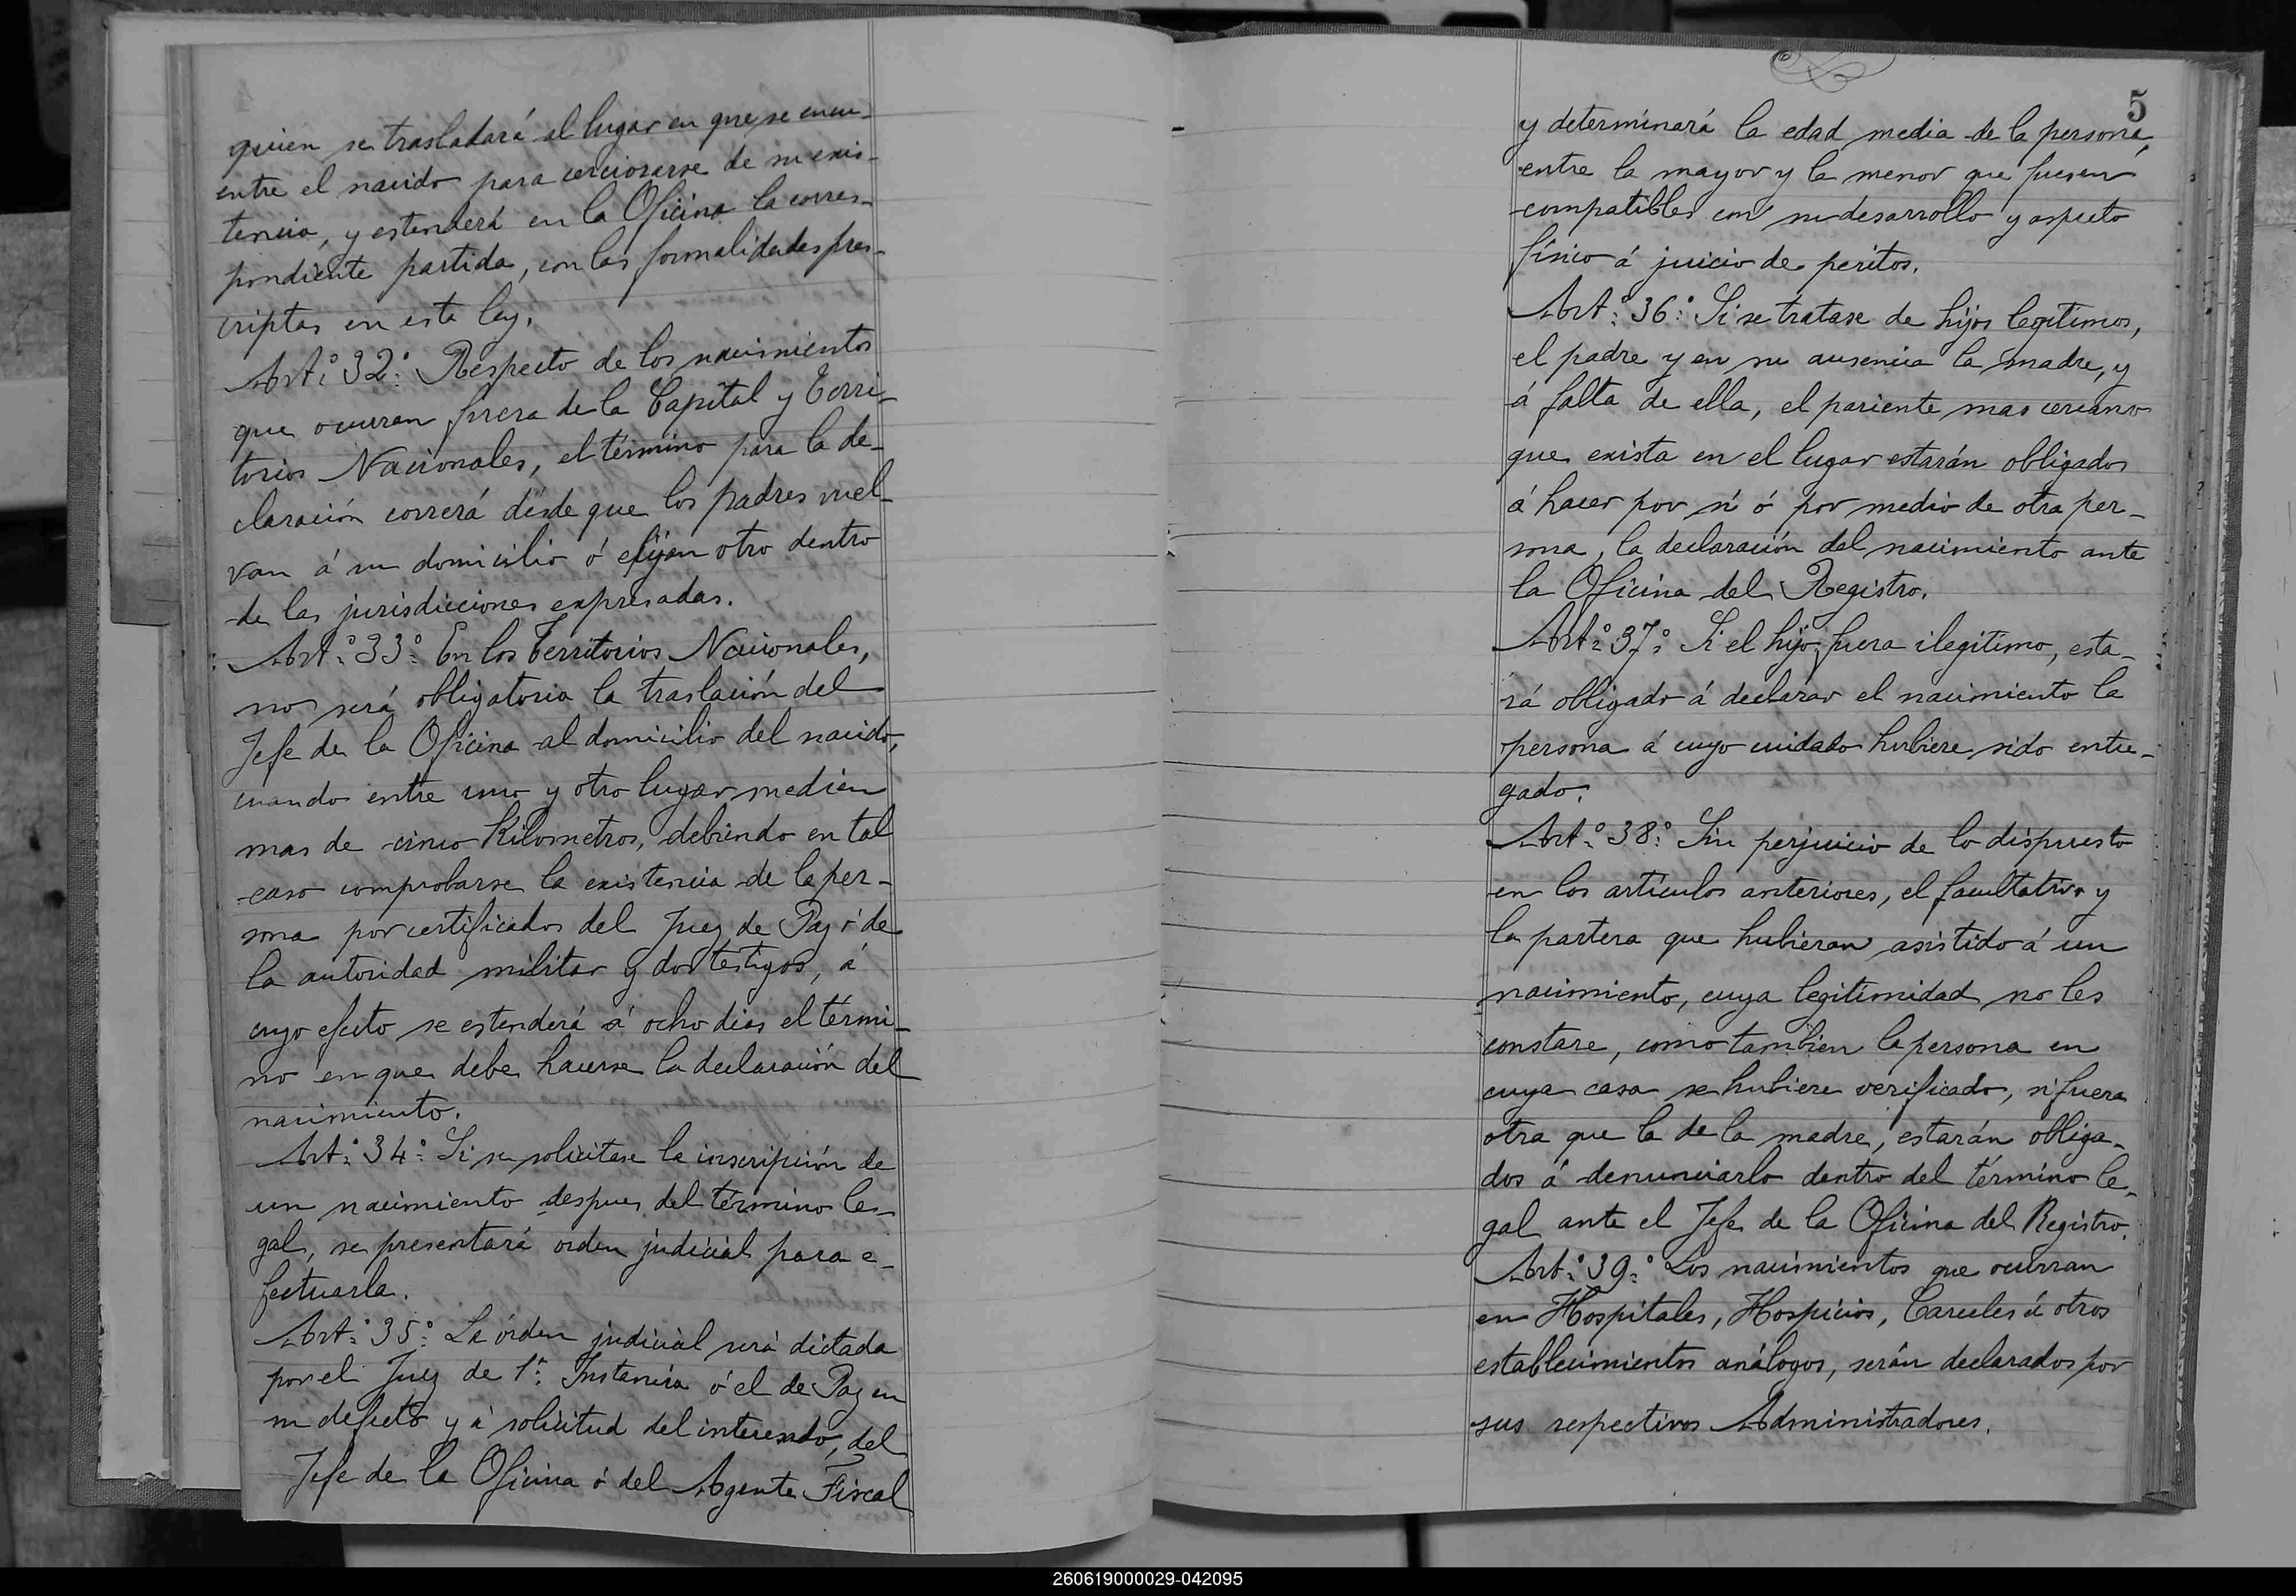 quien se trasladará al lugar en que se encu-
entre el nacido para cerciorarse de su exis-
tencia, y estenderá en la Oficina la corres-
pondiente partida, con las formalidades pres-
criptas en esta ley.
Artº 32º Respecto de los nacimientos
que ocurran fuera de la Capital y Terri-
torios Nacionales, el término para la de-
claración correrá désde que los padres vuel-
van á su domicilio ó elijan otro dentro
de las jurisdicciones expresadas.
Artº 33º En los Territorios Nacionales,
no será obligatoria la traslación del
Jefe de la Oficina al domicilio del nacido,
cuando entre uno y otro lugar medien
mas de cinco Kilometros, debiendo en tal
caso comprobarse la existencia de la per-
sona por certificados del Juez de Paz ó de
la autoridad militar y dos testigos, á
cuyo efecto se estenderá á ocho dias el térmi-
no en que debe hacerse la declaración del
nacimiento.
Artº 34º Si se solicitase la inscripción de
un nacimiento despues del término le-
gal, se presentará orden judicial para e-
fectuarla.
Artº 35º La órden judicial será dictada
por el Juez de 1ª Instancia ó el de Paz en
su defecto y á solicitud del interesado, del
Jefe de la Oficina ó del Agente Fiscal
5
y determinará la edad media de la persona,
entre la mayor y la menor que fuesen
compatibles con su desarrollo y aspecto
físico á juicio de peritos.
Artº 36º Si se tratase de hijos legítimos,
el padre y en su ausencia la madre, y
á falta de ella, el pariente mas cercano
que exista en el lugar estarán obligados
á hacer por sí ó por medio de otra per-
sona, la declaración del nacimiento ante
la Oficina del Registro.
Artº 37º Si el hijo fuera ilegitimo, esta-
rá obligado á declarar el nacimiento la
persona á cuyo cuidado hubiere sido entre-
gado.
Artº 38º Sin perjuicio de lo dispuesto
en los artículos anteriores, el facultativo y
la partera que hubieran asistido á un
nacimiento, cuya legitimidad no les
constare, como tambien la persona en
cuya casa se hubiere verificado, si fuera
otra que la de la madre, estarán obliga-
dos á denunciarlo dentro del término le-
gal ante el Jefe de la Oficina del Registro.
Artº 39º Los nacimientos que ocurran
en Hospitales, Hospicios, Carceles ú otros
establecimientos análogos, serán declarados por
sus respectivos Administradores.
260619000029-042095